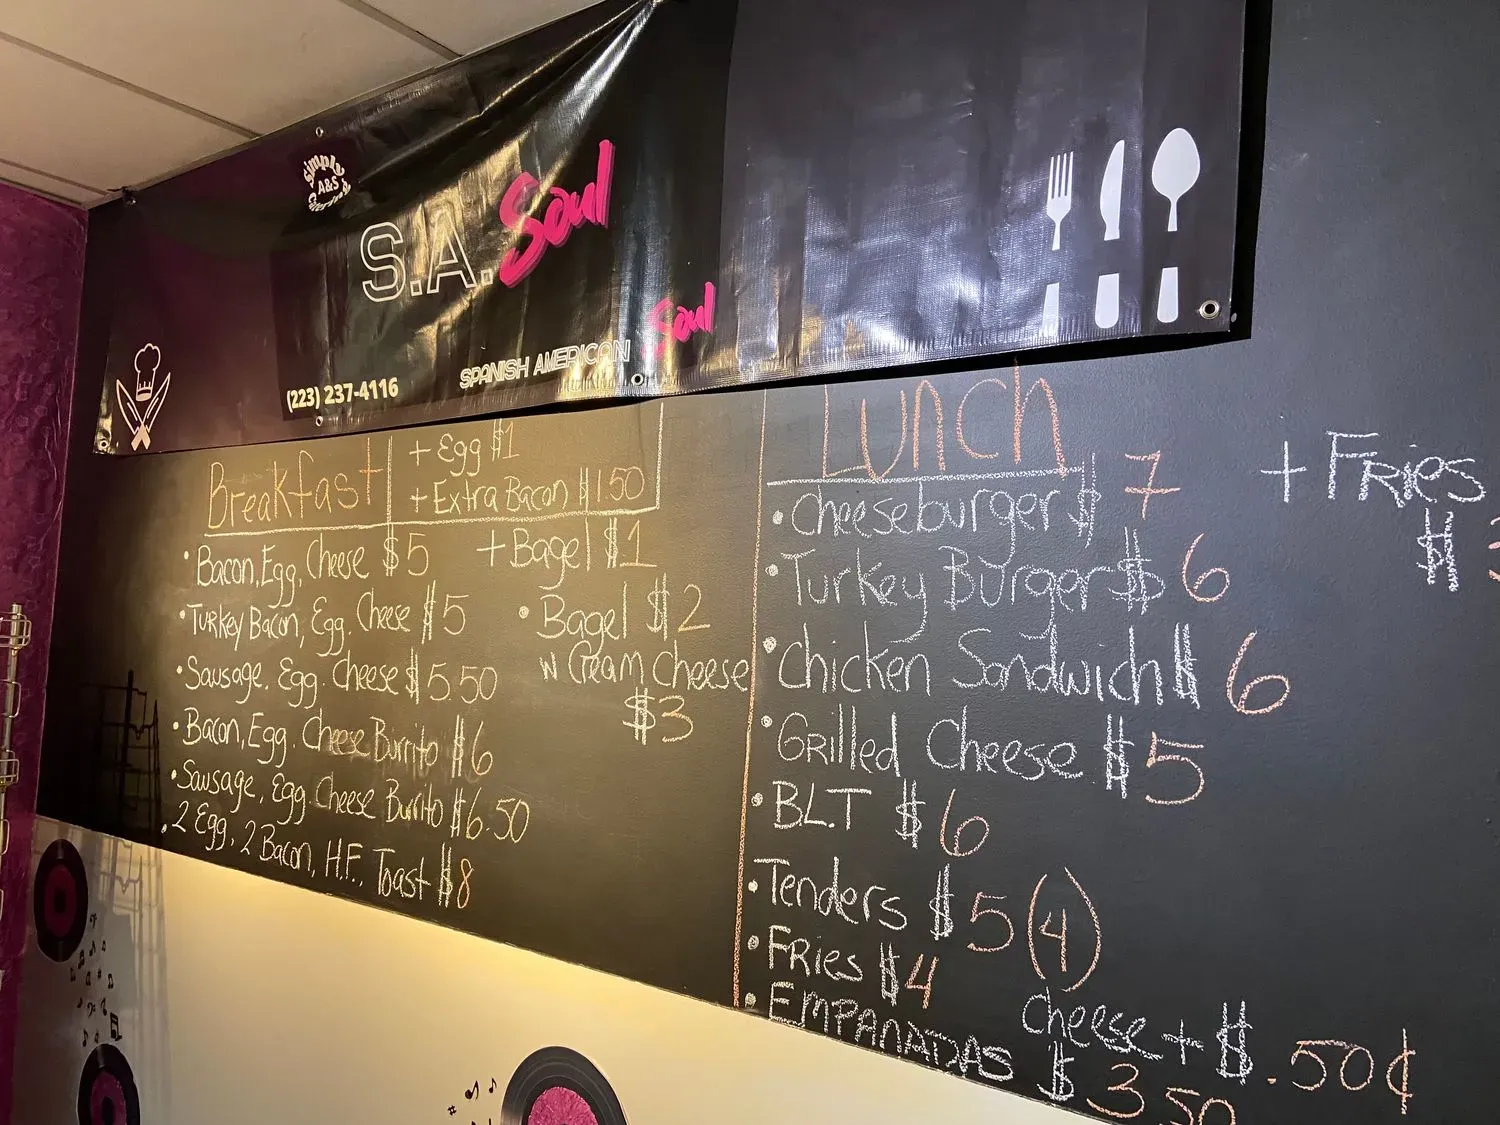 simple
A&S
Catering
S.A. Soul
SPANISH AMERICAN Soul
(223) 237-4116
Breakfast
+ Egg $1
+ Extra Bacon $1.50
• Bacon, Egg, Cheese $5
+ Bagel $1
• Turkey Bacon, Egg, Cheese $5
• Bagel $2
w Cream Cheese
$3
• Sausage, Egg, Cheese $5.50
• Bacon, Egg, Cheese Burrito $6
• Sausage, Egg, Cheese Burrito $6.50
• 2 Egg, 2 Bacon, H.F., Toast $8
Lunch
• Cheeseburger $7
+ Fries
$
• Turkey Burger $6
• Chicken Sandwich $6
• Grilled Cheese $5
• B.L.T $6
• Tenders $5 (4)
• Fries $4
Cheese + $.50¢
• EMPANADAS $3.50